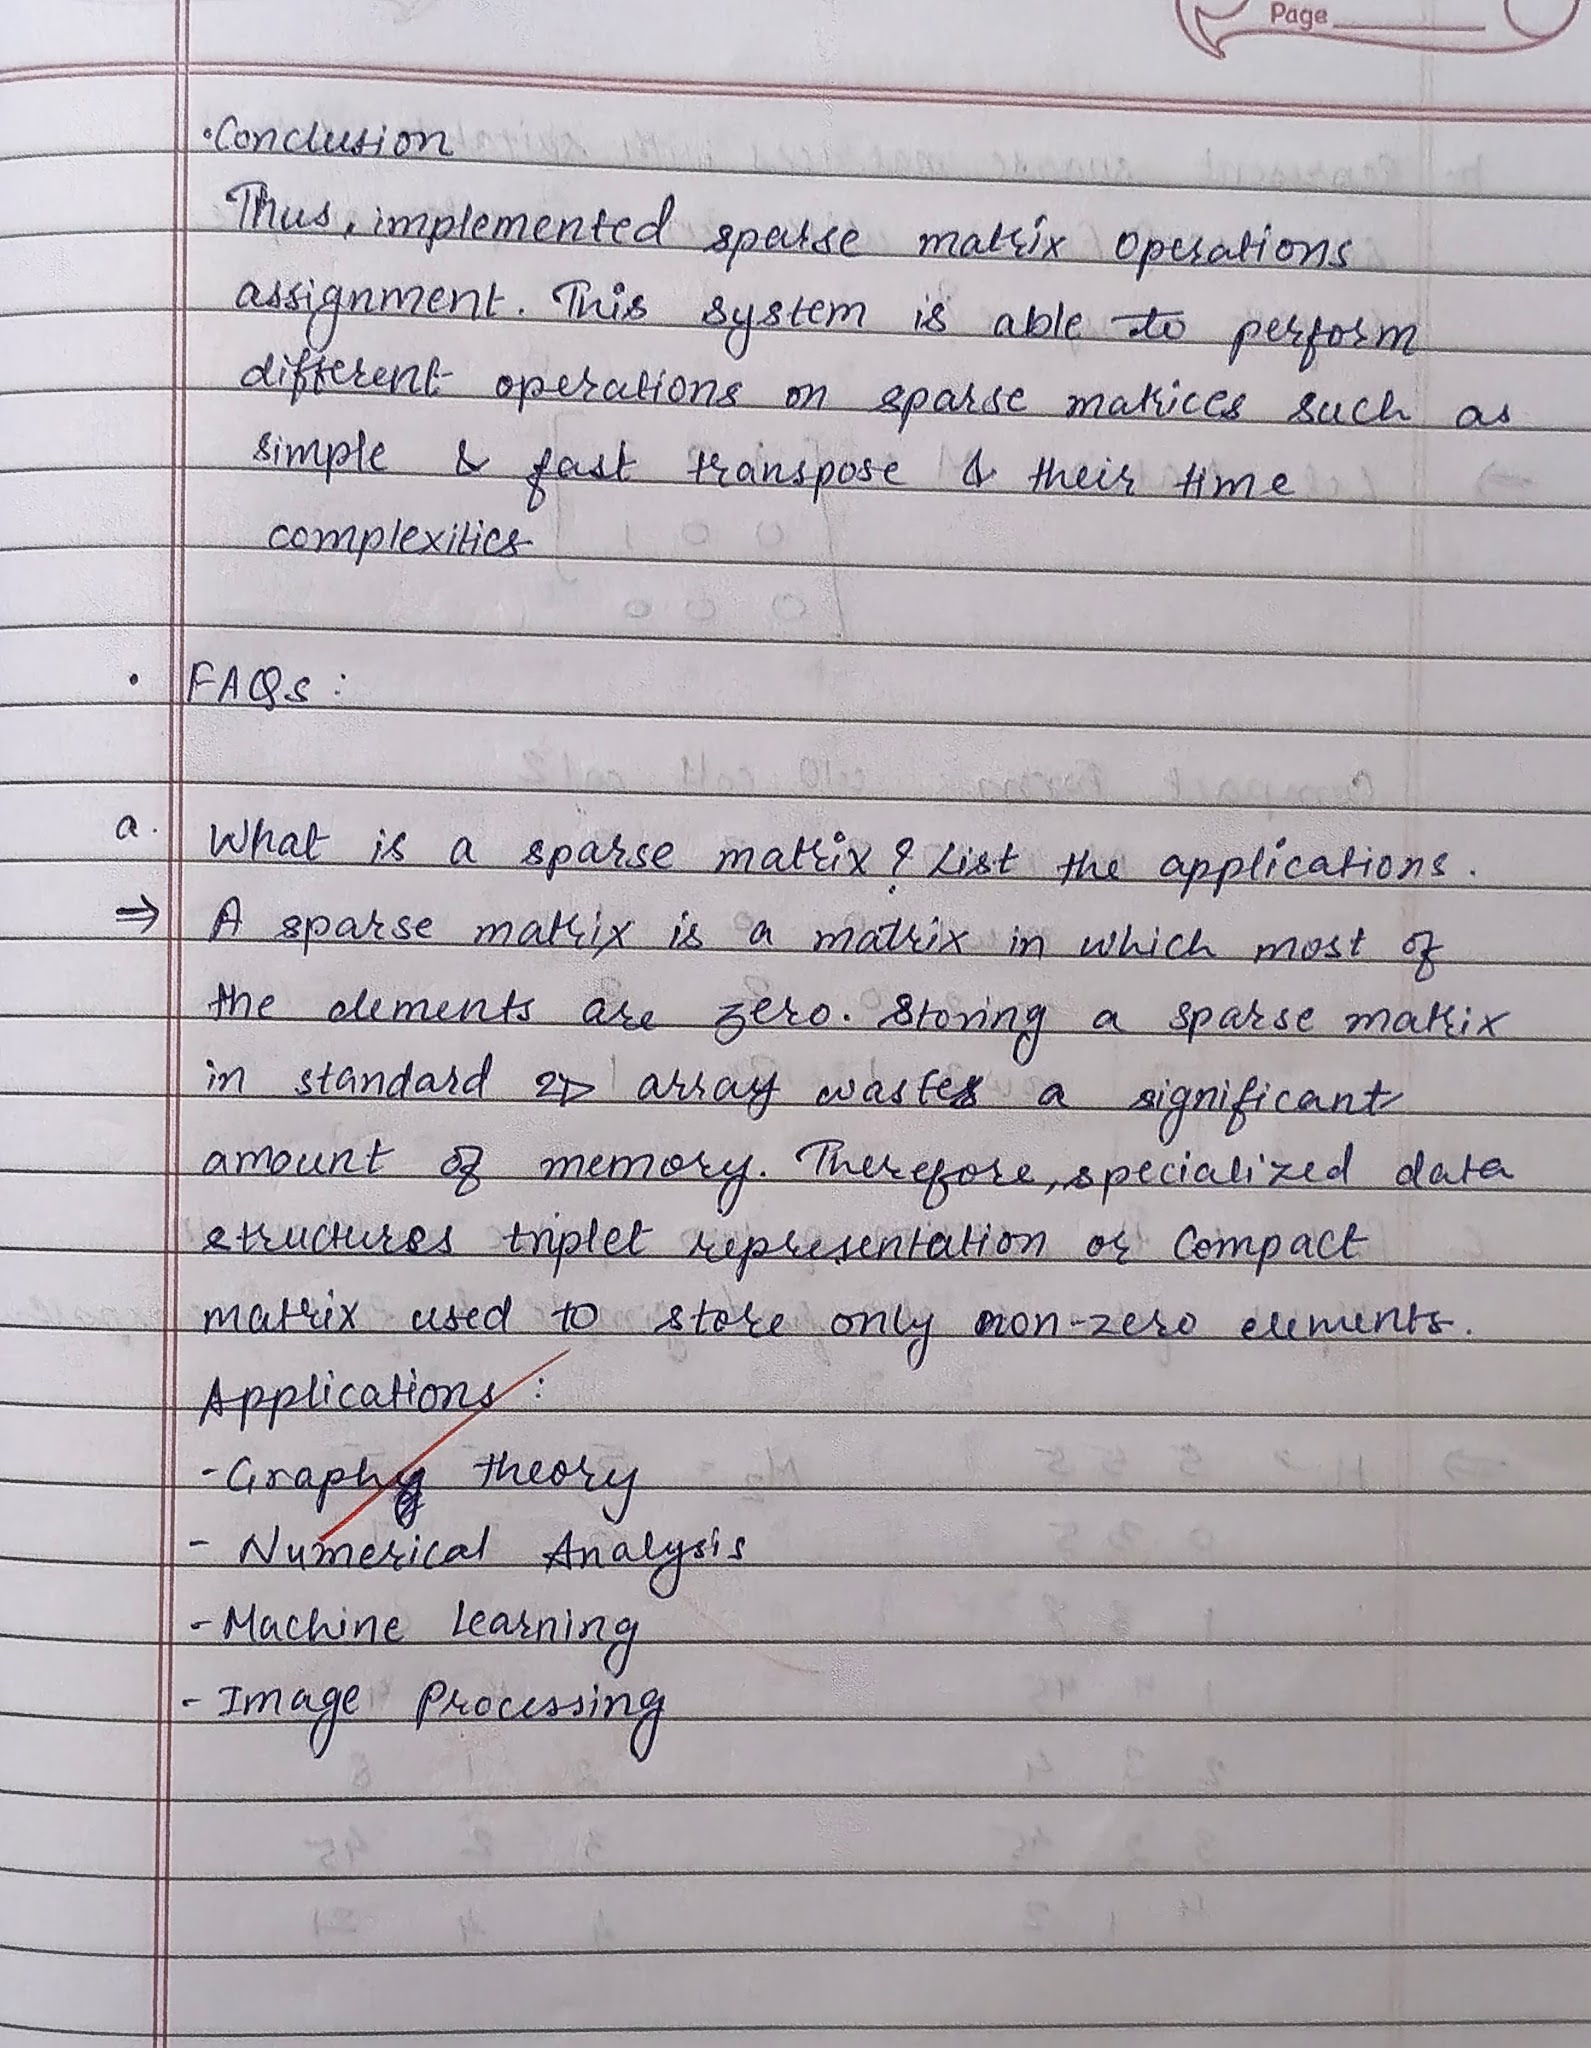 Page
• Conclusion
Thus, implemented sparse matrix operations
assignment. This system is able to perform
different operations on sparse matrices such as
simple & fast transpose & their time
complexities
• FAQs :
a. What is a sparse matrix? List the applications.
⇒ A sparse matrix is a matrix in which most of
the elements are zero. Storing a sparse matrix
in standard 2D array wastes a significant
amount of memory. Therefore, specialized data
structures triplet representation or compact
matrix used to store only non-zero elements.
Applications :
- Graph theory
- Numerical Analysis
- Machine Learning
- Image Processing